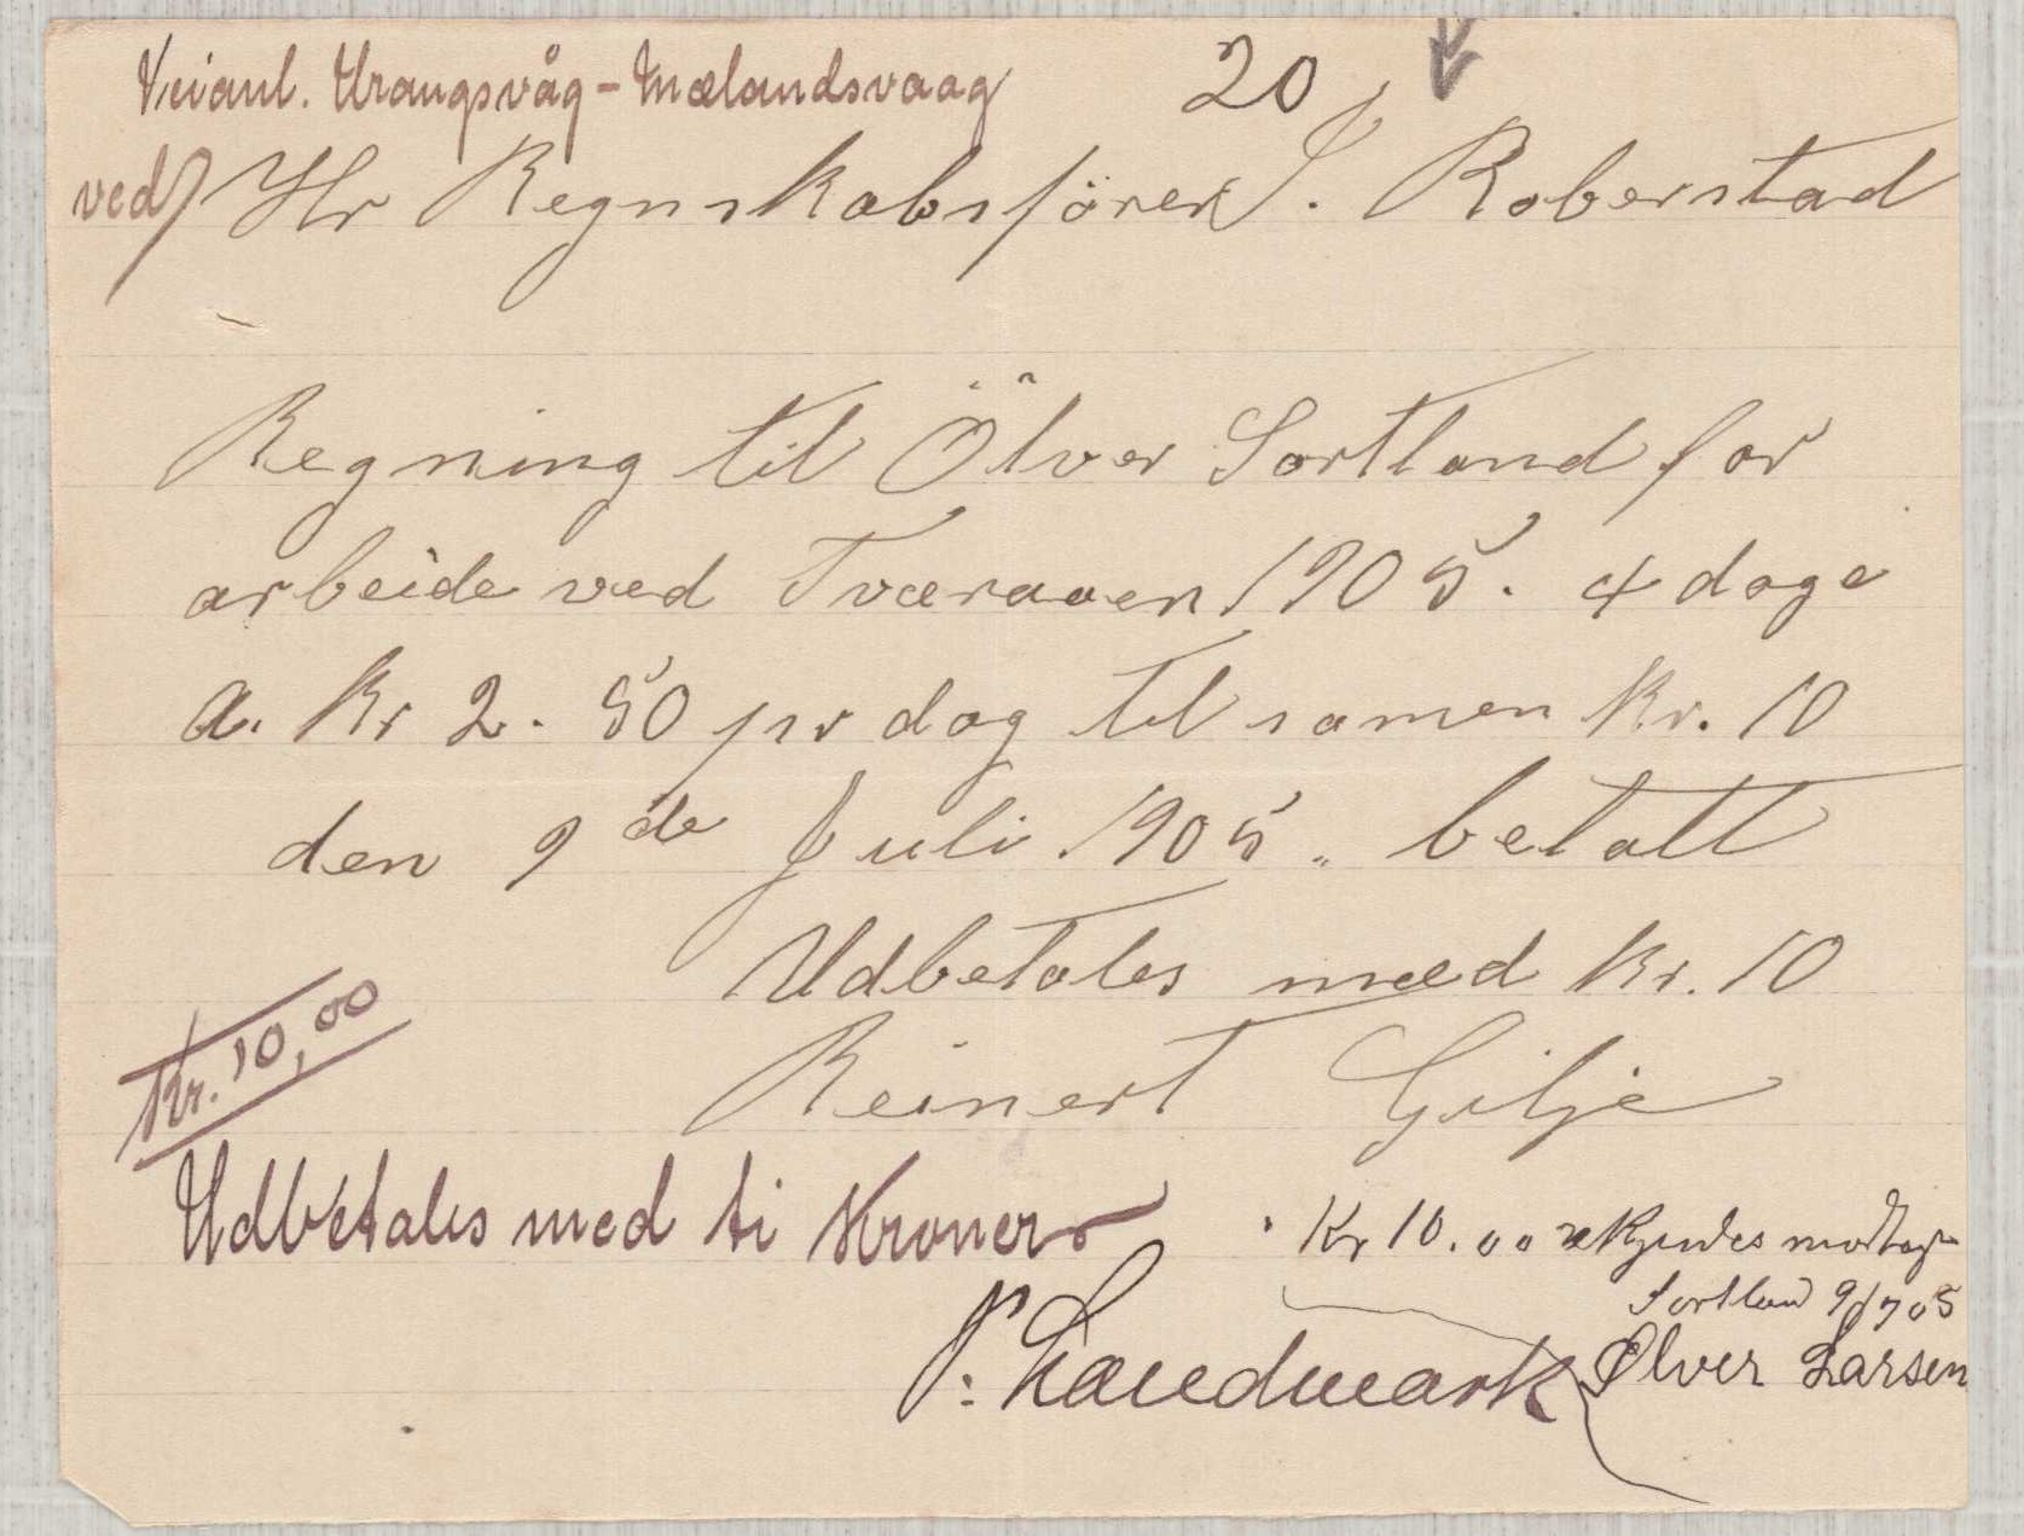 Veianl. Urangsvåg - Mælandsvaag
20
ved/ Hr Regnskabsförer J. Roberstad
Regning til Ölver Sortland for
arbeide ved Tværaaen 1905. 4 dage
a. Kr 2. 50 pr dag til samen Kr. 10
den 9 de Juli 1905. betalt
Udbetales med Kr. 10
Reinert Gilje
Kr. 10,00
Udbetales med ti Kroner
P. Landmark
Kr 10.00 erkjendes modtaget
Sortland 9/7 05
Ølver Larsen